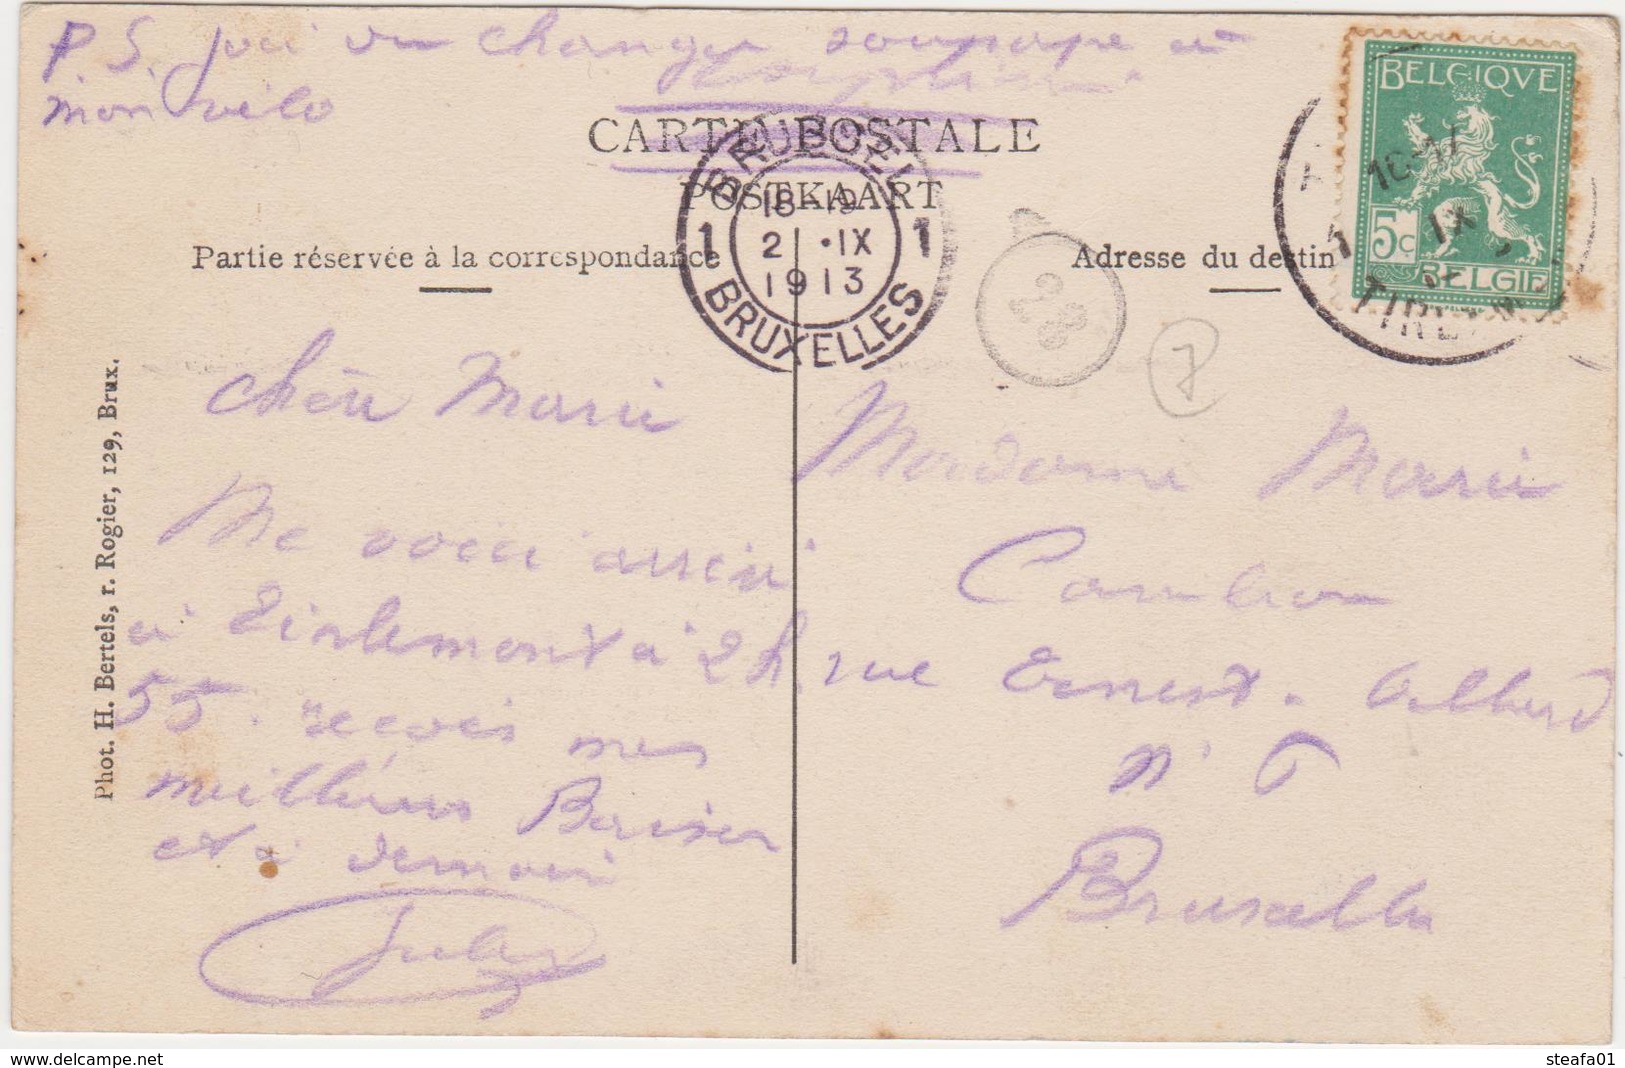 P.S. j'ai du changer soupape à
mon vélo
CARTE POSTALE
POSTKAART
Partie réservée à la correspondance
Adresse du destin
BRUSSEL
18-19
1 21·IX 1
1913
BRUXELLES
BELGIQVE
5c
BELGIË
10-
IX
TIRLEM
7
Phot. H. Bertels, r. Rogier, 129, Brux.
Chère Marie
Me voici arrivé
à Tirlemont à 2 h
55. reçois mes
meilleurs Baiser
et à demain
Jules
Madame Marie
Cambron
rue Ernest. Allard
n°
Bruxelles
www.delcampe.net
steafa01